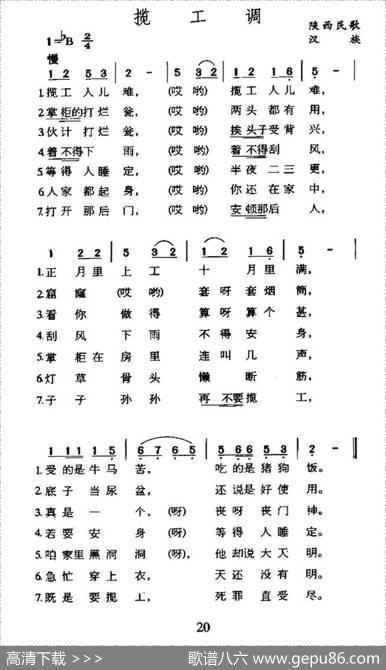 揽工调
1=♭B 2/4
陕西民歌
汉族
慢
1 2 5 3 | 2 - | 5 3 2 | 1 2 1 6 | 5 - |
1.揽工人儿难,(哎哟) 揽工人儿难,
2.掌柜的打烂瓮,(哎哟) 两头都有用,
3.伙计打烂瓮,(哎哟) 挨头子受背兴,
4.着不得下雨,(哎哟) 着不得刮风,
5.等得人睡定,(哎哟) 半夜二三更,
6.人家都起身,(哎哟) 你还在家中,
7.打开那后门,(哎哟) 安顿那后人,
1 2 2 | 5 3 2 | 1 2 1 6 | 5 - |
1.正月里上工十月里满,
2.窟窿(哎哟)套呀套烟筒,
3.看你做得算呀算个甚,
4.刮风下雨不得安身,
5.掌柜在房里连叫几声,
6.灯草骨头懒断筋,
7.子子孙孙再不要揽工,
1 1 1 1 5 | 6 7 6 5 | 5 6 6 5 3 | 2 - ‖
1.受的是牛马苦, 吃的是猪狗饭。
2.底子当尿盆, 还说是好使用。
3.真是一个,(呀) 丧呀丧门神。
4.若要安身(呀) 等得人睡定。
5.咱家里黑洞洞(呀), 他却说大天明。
6.急忙穿上衣, 天还没有明。
7.既是要揽工, 死罪直受尽。
20
高清下载 >>> 歌谱八六 www.gepu86.com